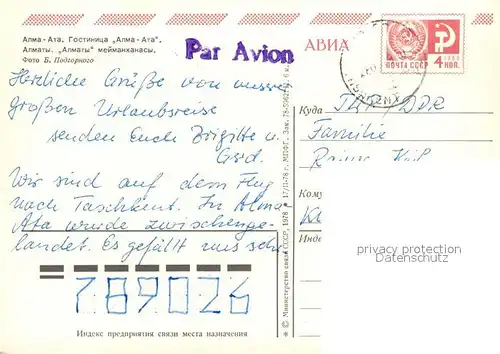 Алма-Ата. Гостиница „Алма-Ата".
Алматы. „Алматы" мейманханасы.
Фото Б. Подгорного
Par Avion
АВИА
ПОЧТА СССР
4 КОП.
Herzliche Grüße von unsrer
großen Urlaubsreise
senden Euch Brigitte u.
Gerd.
Wir sind auf dem Flug
nach Taschkent. In Alma
Ata wurde zwischenge-
landet. Es gefällt uns sehr
Куда
DDR
Familie
Кому
Инде
privacy protection
Datenschutz
© Министерство связи СССР, 1978 17/II-78 г. МПФГ. Зак.
789026
Индекс предприятия связи места назначения